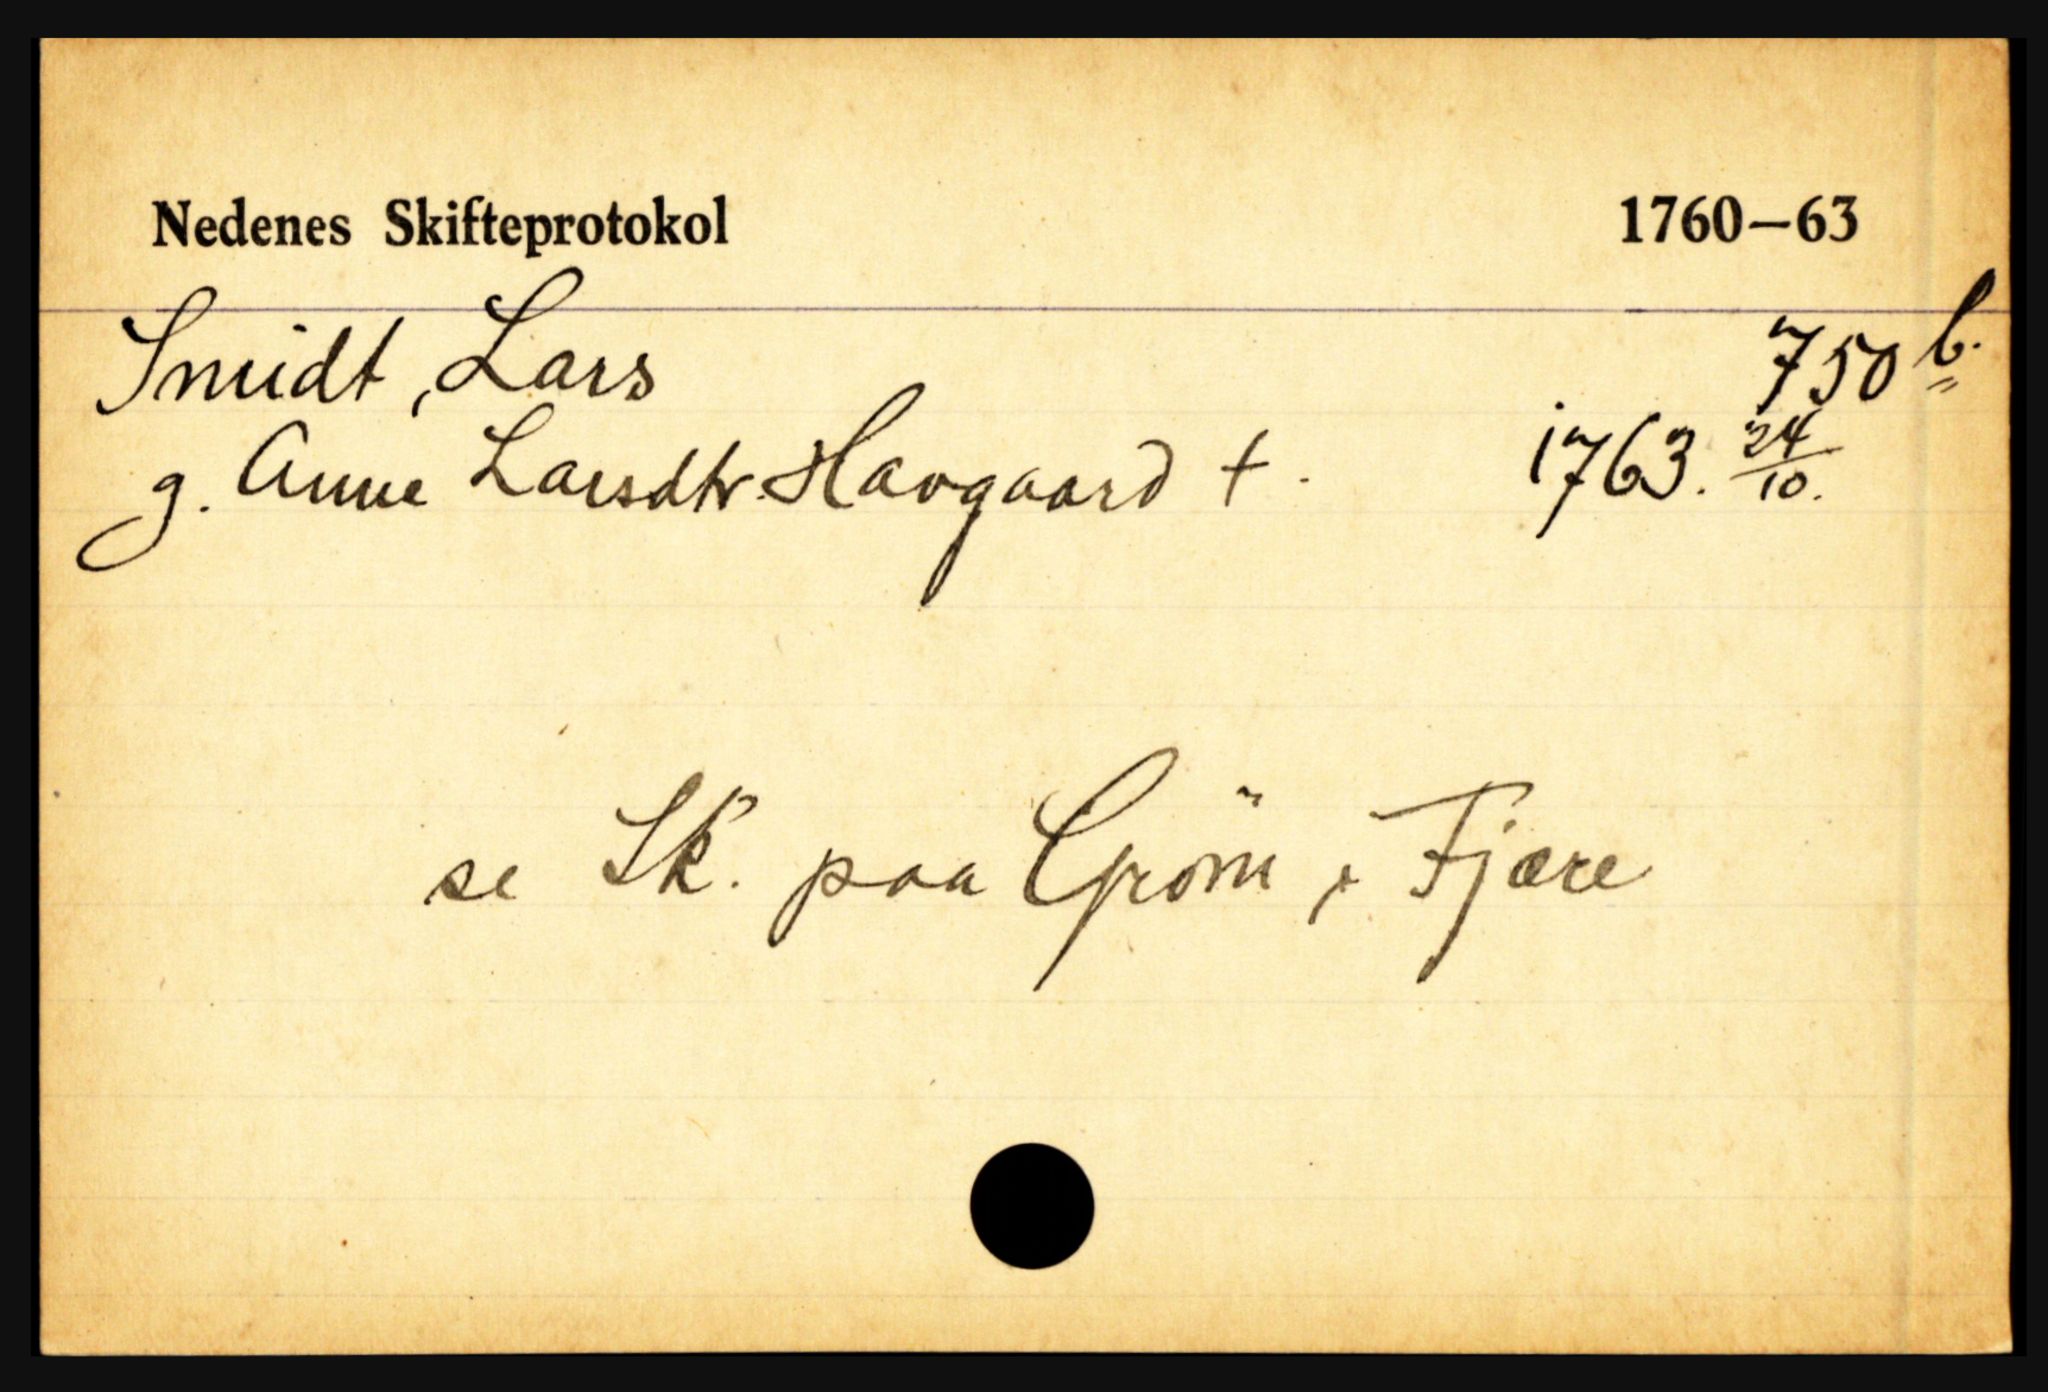 Nedenes Skifteprotokol 1760–63
Smidt, Lars 750 b.
g. Anne Larsdtr. Havgaard †. 1763. 24/10.
se Sk. paa Gröm i Fjære